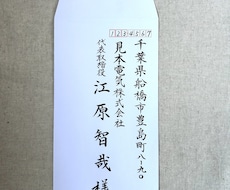 1234567
千葉県船橋市豊島町八-九〇
見本電気株式会社
代表取締役
江原智哉様